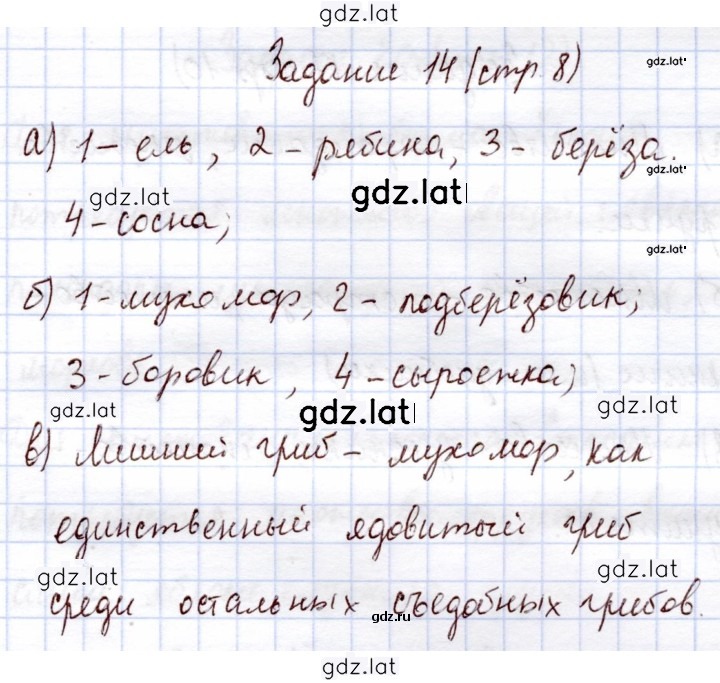 gdz.lat
Задание 14 (стр. 8)
gdz.lat
gdz.lat
а) 1 – ель, 2 – рябина, 3 – берёза.
gdz.lat
gdz.lat
gdz.lat
4 – сосна;
gdz.lat
б) 1 – мухомор, 2 – подберёзовик;
gdz.lat
3 – боровик, 4 – сыроежка;
gdz.lat
gdz.lat
gdz.lat
в) Лишний гриб – мухомор, как
единственный ядовитый гриб
gdz.lat
gdz.lat
среди остальных съедобных грибов.
gdz.ru
gdz.lat